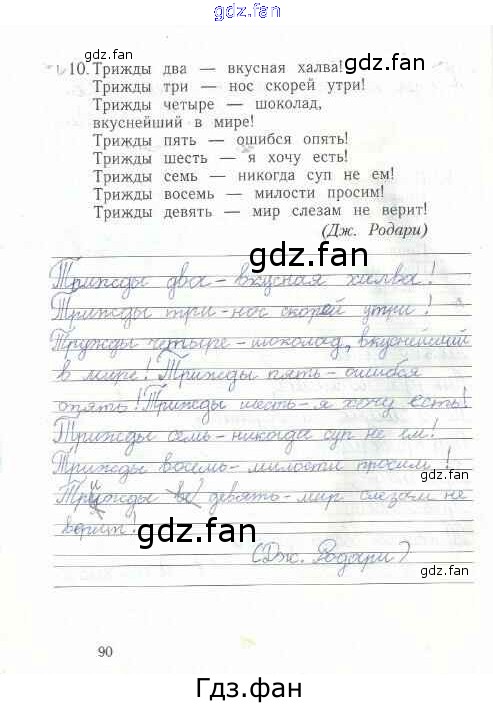 gdz.fan
gdz.fan
gdz.fan
10. Трижды два — вкусная халва!
Трижды три — нос скорей утри!
Трижды четыре — шоколад,
вкуснейший в мире!
Трижды пять — ошибся опять!
Трижды шесть — я хочу есть!
Трижды семь — никогда суп не ем!
Трижды восемь — милости просим!
Трижды девять — мир слезам не верит!
(Дж. Родари)
gdz.fan
Трижды два - вкусная халва!
Трижды три - нос скорей утри!
Трижды четыре - шоколад, вкуснейший
gdz.fan
gdz.fan
в мире! Трижды пять - ошибся
опять! Трижды шесть - я хочу есть!
Трижды семь - никогда суп не ем!
Трижды восемь - милости просим!
Трижды девять - мир слезам не
верит!
gdz.fan
(Дж. Родари)
gdz.fan
90
Гдз.фан